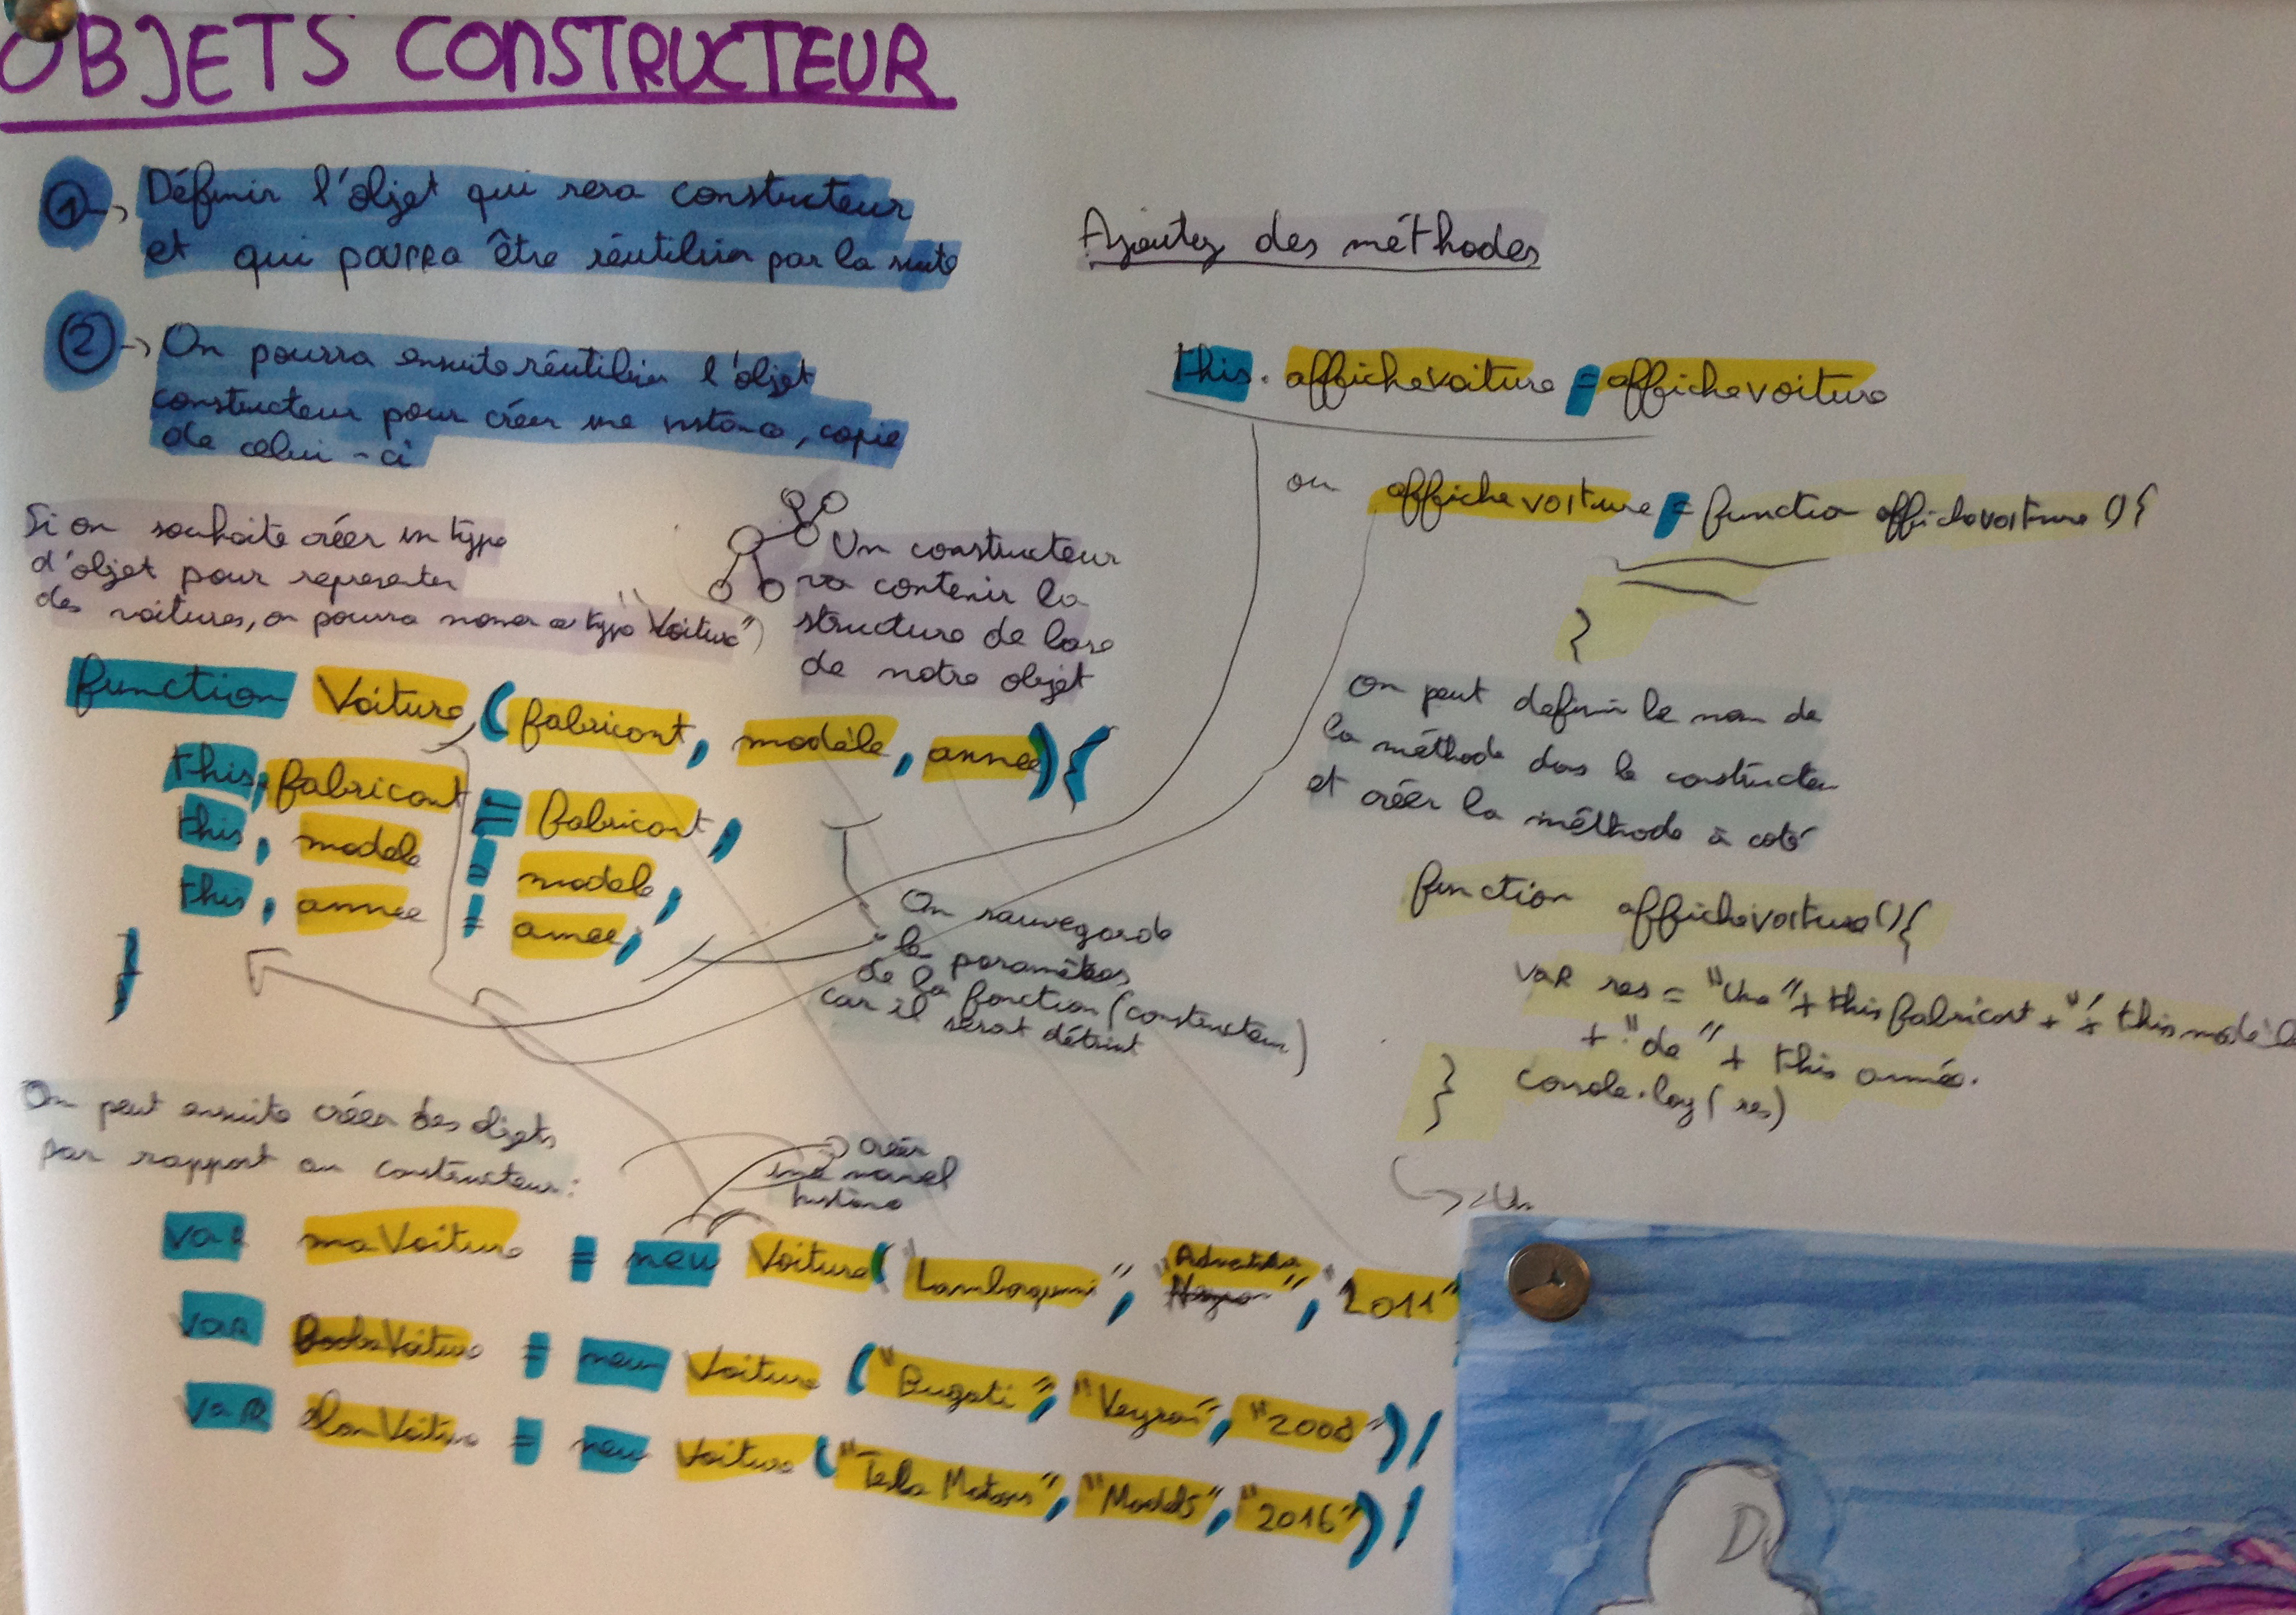 OBJETS CONSTRUCTEUR
① → Définir l'objet qui sera constructeur
et qui pourra être réutiliser par la suite
② → On pourra ensuite réutiliser l'objet
constructeur pour créer une instance, copie
de celui-ci
Si on souhaite créer un type
d'objet pour representer
des voitures, on pourra nomer ce type "Voiture"
Un constructeur
va contenir la
structure de base
de notre objet
function Voiture (fabricant, modèle, annee) {
this.fabricant = fabricant;
this.modele = modele;
this.annee = annee;
}
On sauvegarde
le paramètres
de la fonction (constructeur)
car il serat détruit
On peut ensuite créer des objets
par rapport au constructeur :
créer
une nouvel
instance
var maVoiture = new Voiture ("Lamborgini", "2011"
var Voiture = new Voiture ("Bugati", "Veyron", "2008");
var Voiture = new Voiture ("Tesla Motors", "ModelS", "2016");
Ajoutez des méthodes
this.affichevoiture = affichevoiture
ou affichevoiture = function affichevoiture () {
}
On peut definir le nom de
la méthode dans le constructeur
et créer la méthode à coté
function affichevoiture () {
var res = "Une" + this fabricant + " " + this modèle
+ "de" + this année.
console.log( res)
}
D